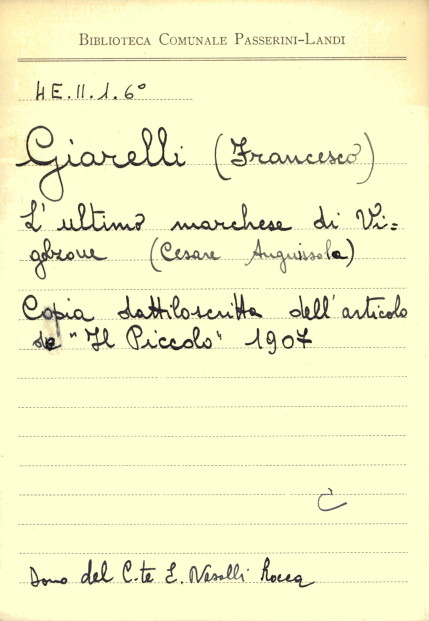 BIBLIOTECA COMUNALE PASSERINI-LANDI
4E.II.1.6°
Giarelli (Francesco)
L'ultimo marchese di Vi=
golzone (Cesare Anguissola)
Copia dattiloscritta dell'articolo
de "Il Piccolo" 1907
C
Dono del C.te E. Nasalli Rocca